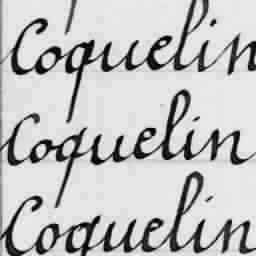 Coquelin
Coquelin
Coquelin